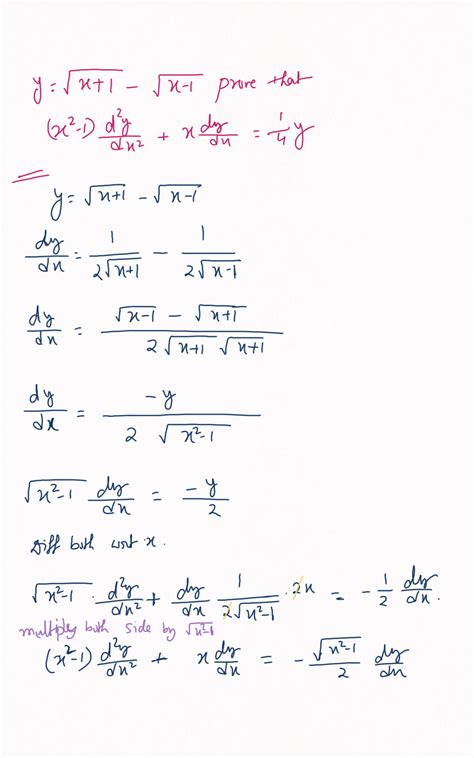 y = √(x+1) − √(x-1) prove that
(x²-1) d²y/dx² + x dy/dx = 1/4 y
y = √(x+1) − √(x-1)
dy/dx = 1/(2√(x+1)) − 1/(2√(x-1))
dy/dx = (√(x-1) − √(x+1))/(2√(x+1) √(x+1))
dy/dx = -y/(2√(x²-1))
√(x²-1) dy/dx = -y/2
Diff both wrt x.
√(x²-1) · d²y/dx² + dy/dx 1/(2√(x²-1)) · 2x = -1/2 dy/dx.
multiply both side by √(x²-1)
(x²-1) d²y/dx² + x dy/dx = - √(x²-1)/2 dy/dx